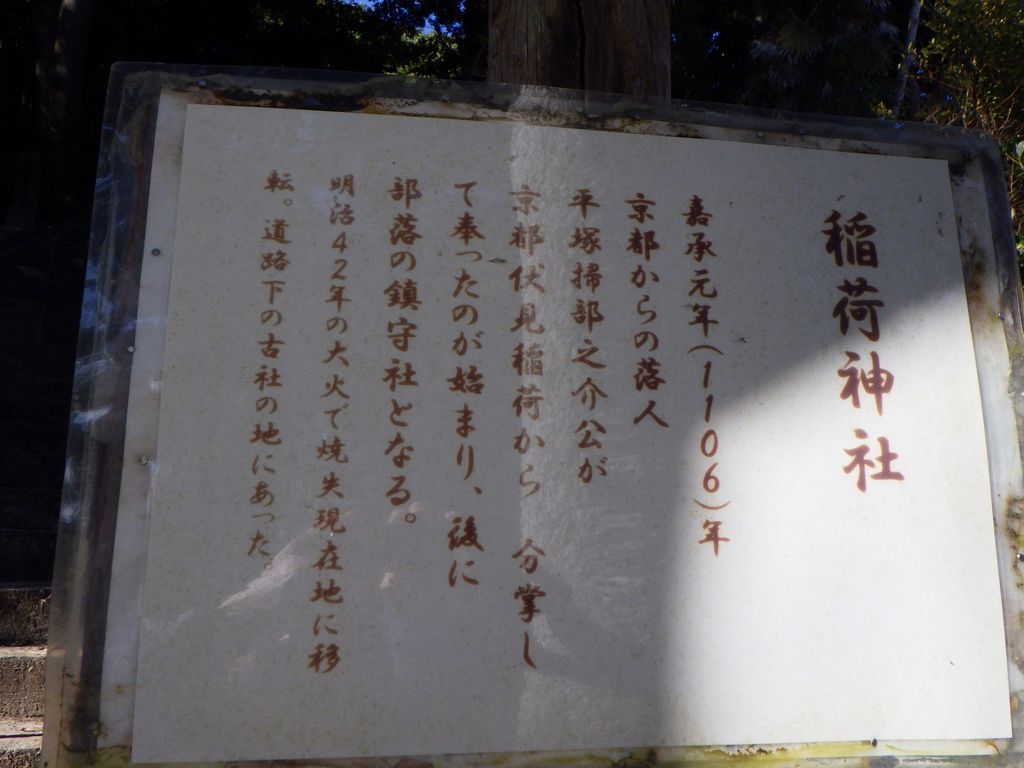 稲荷神社
嘉承元年(1106)年
京都からの落人
平塚掃部之介公が
京都伏見稲荷から 分掌し
て奉ったのが始まり、後に
部落の鎮守社となる。
明治42年の大火で焼失現在地に移
転。道路下の古社の地にあった